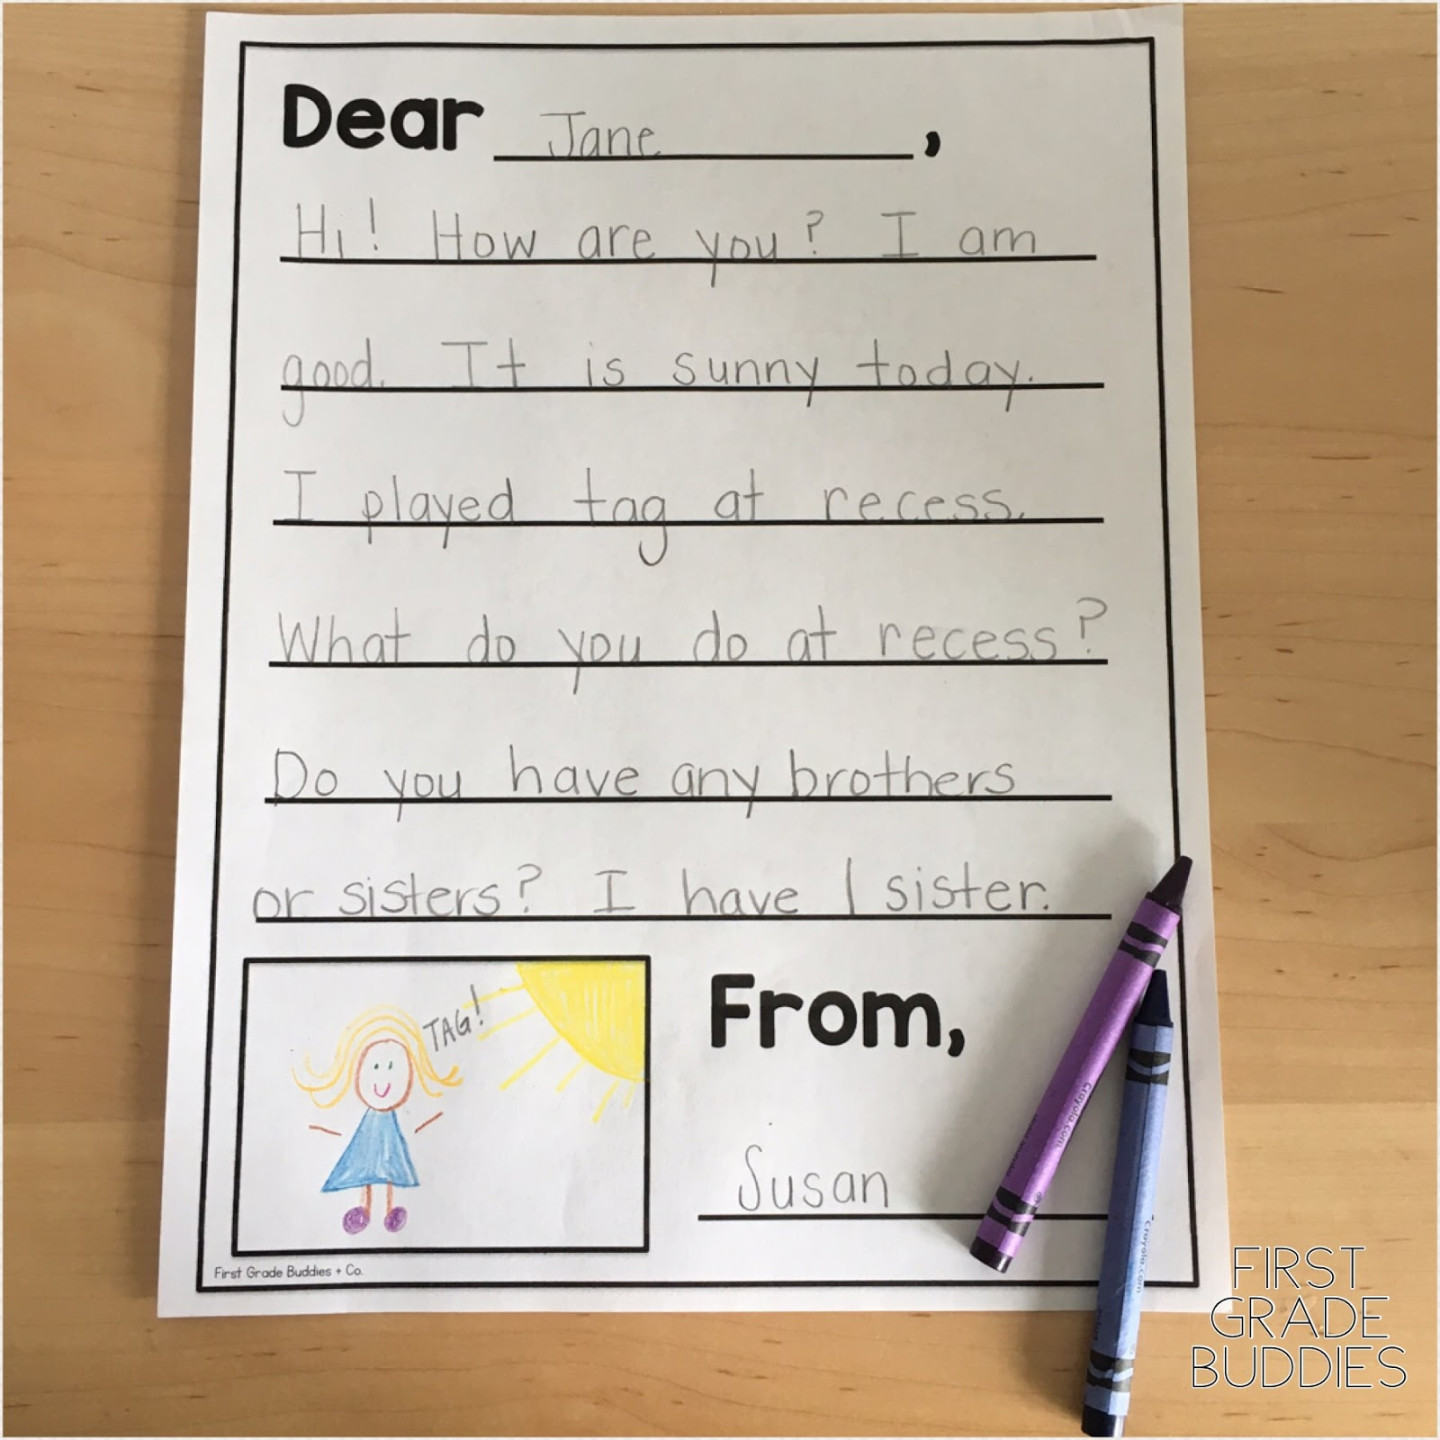 Dear Jane,
Hi! How are you? I am
good. It is sunny today.
I played tag at recess.
What do you do at recess?
Do you have any brothers
or sisters? I have 1 sister.
TAG!
From,
Susan
First Grade Buddies + Co.
Crayola.com
Crayola.com
FIRST
GRADE
BUDDIES